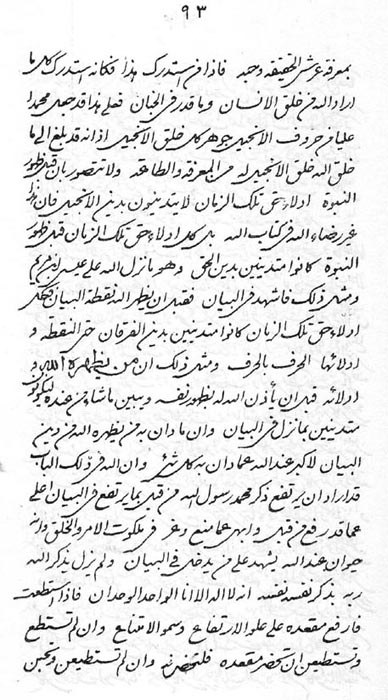 ٩٣
بمعرفة عرش الحقيقة وحبه فاذا من استدرك هذا فكانه استدرك كل ما
اراد الله من خلق الانسان وما قدر فى الجنان فعلى هذا قد جعل محمدا
عليا من حروف الانجيل جوهر كل خلق الانجيل اذ انه قد بلغ الى ما
خلق الله خلق الانجيل له من المعرفة والطاعة ولا تتصور بان قبل ظهور
النبوة ادلاء حق تلك الزمان لا يتدينون بدين الانجيل فان هذا
غير رضاء الله فى كتاب الله بل كل ادلاء حق تلك الزمان قبل ظهور
النبوة كانوا متدينين بدين الحق وهو ما نزل الله على عيسى ابن مريم
ومثل ذلك فاشهد فى البيان فقبل ان يظهر الله نقطة البيان كل
ادلاء حق تلك الزمان كانوا متدينين بدين الفرقان حق النقطه و
ادلائها الحرف بالحرف ومثل ذلك ان من يظهره الله و
ادلائه قبل ان يأذن الله له بظهور نفسه ويبين ما شاء من عنده ليكونن
متدينين بما نزل فى البيان وان ما دان به من يظهره الله من دين
البيان لاكبر عند الله عما دان به كل شئ وان الله فى ذلك الباب
قد اراد ان يرتفع ذكر محمد رسول الله من قبل بما يرتفع فى البيان اعلى
عما قد رفع من قبل وابهى عما منع وعز فى ملكوت الامر والخلق وانه
حيوان عند الله يشهد على من يدخل فى البيان ولم يزل يذكر الله
ربه بذكر نفسه نفسه انه لا اله الا انا الواحد الوحدان فاذا استطعت
فارفع مقعده على علو الارتفاع وسمو الامتناع وان لم تستطع
وتستطيعن ان تحضر مقعده فلتحضرنه وان لم تستطيعن وتحبن